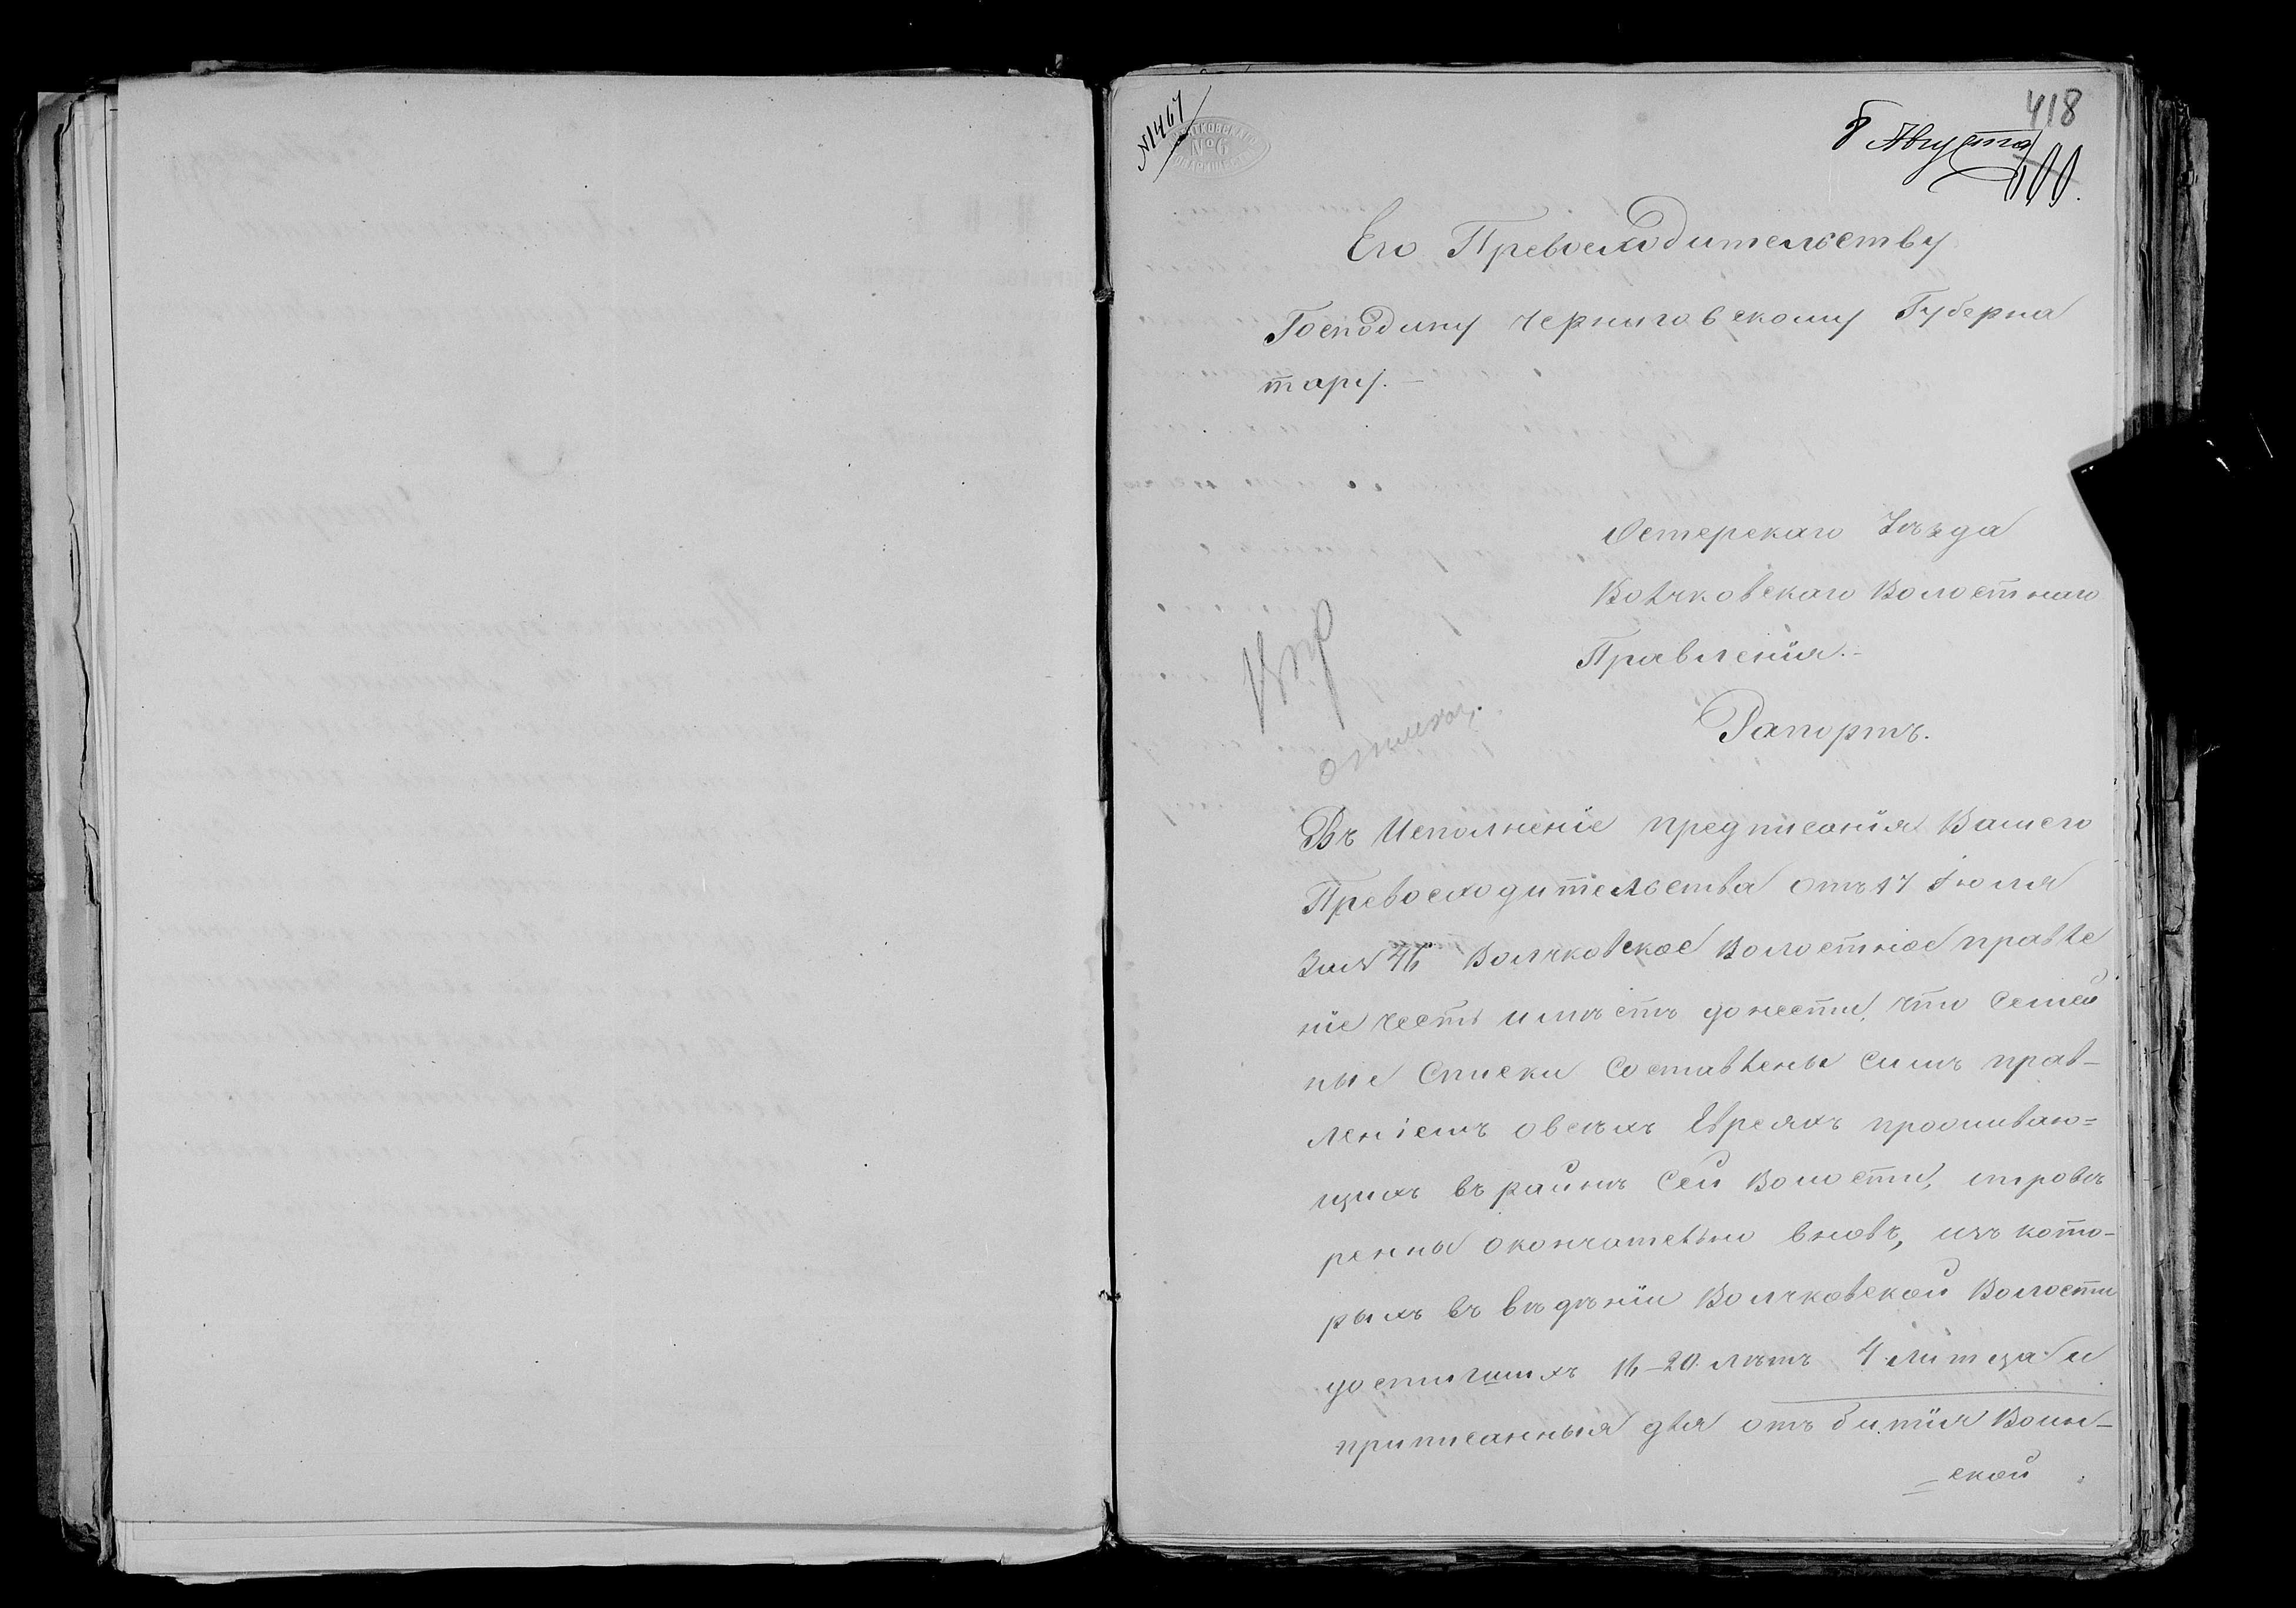 418
№1467
№6
8 Августа
400.
Его Превосходительству
Господину Черниговскому Губерна
тару.—
Остерскаго Уѣзда
Волчковскаго Волостнаго
Правленія.—
Рапортъ.
Въ Исполненіе предписанія Вашего
Превосходительства отъ 17 Іюля
за № 46 Волчковское Волостное правле
ніе честь имѣетъ донести, что Семей
ные Списки Составлены Симъ прав-
леніемъ о всѣхъ Евреяхъ проживаю=
щихъ въ раинѣ Сей Волости, провѣ
ренны окончательно вновѣ, изъ кото-
рыхъ въ вѣдѣніи Волчковской Волости
достигшихъ 16-20 лѣтъ 4 литца и
приписанныя для отъбитія Воин-
— ской